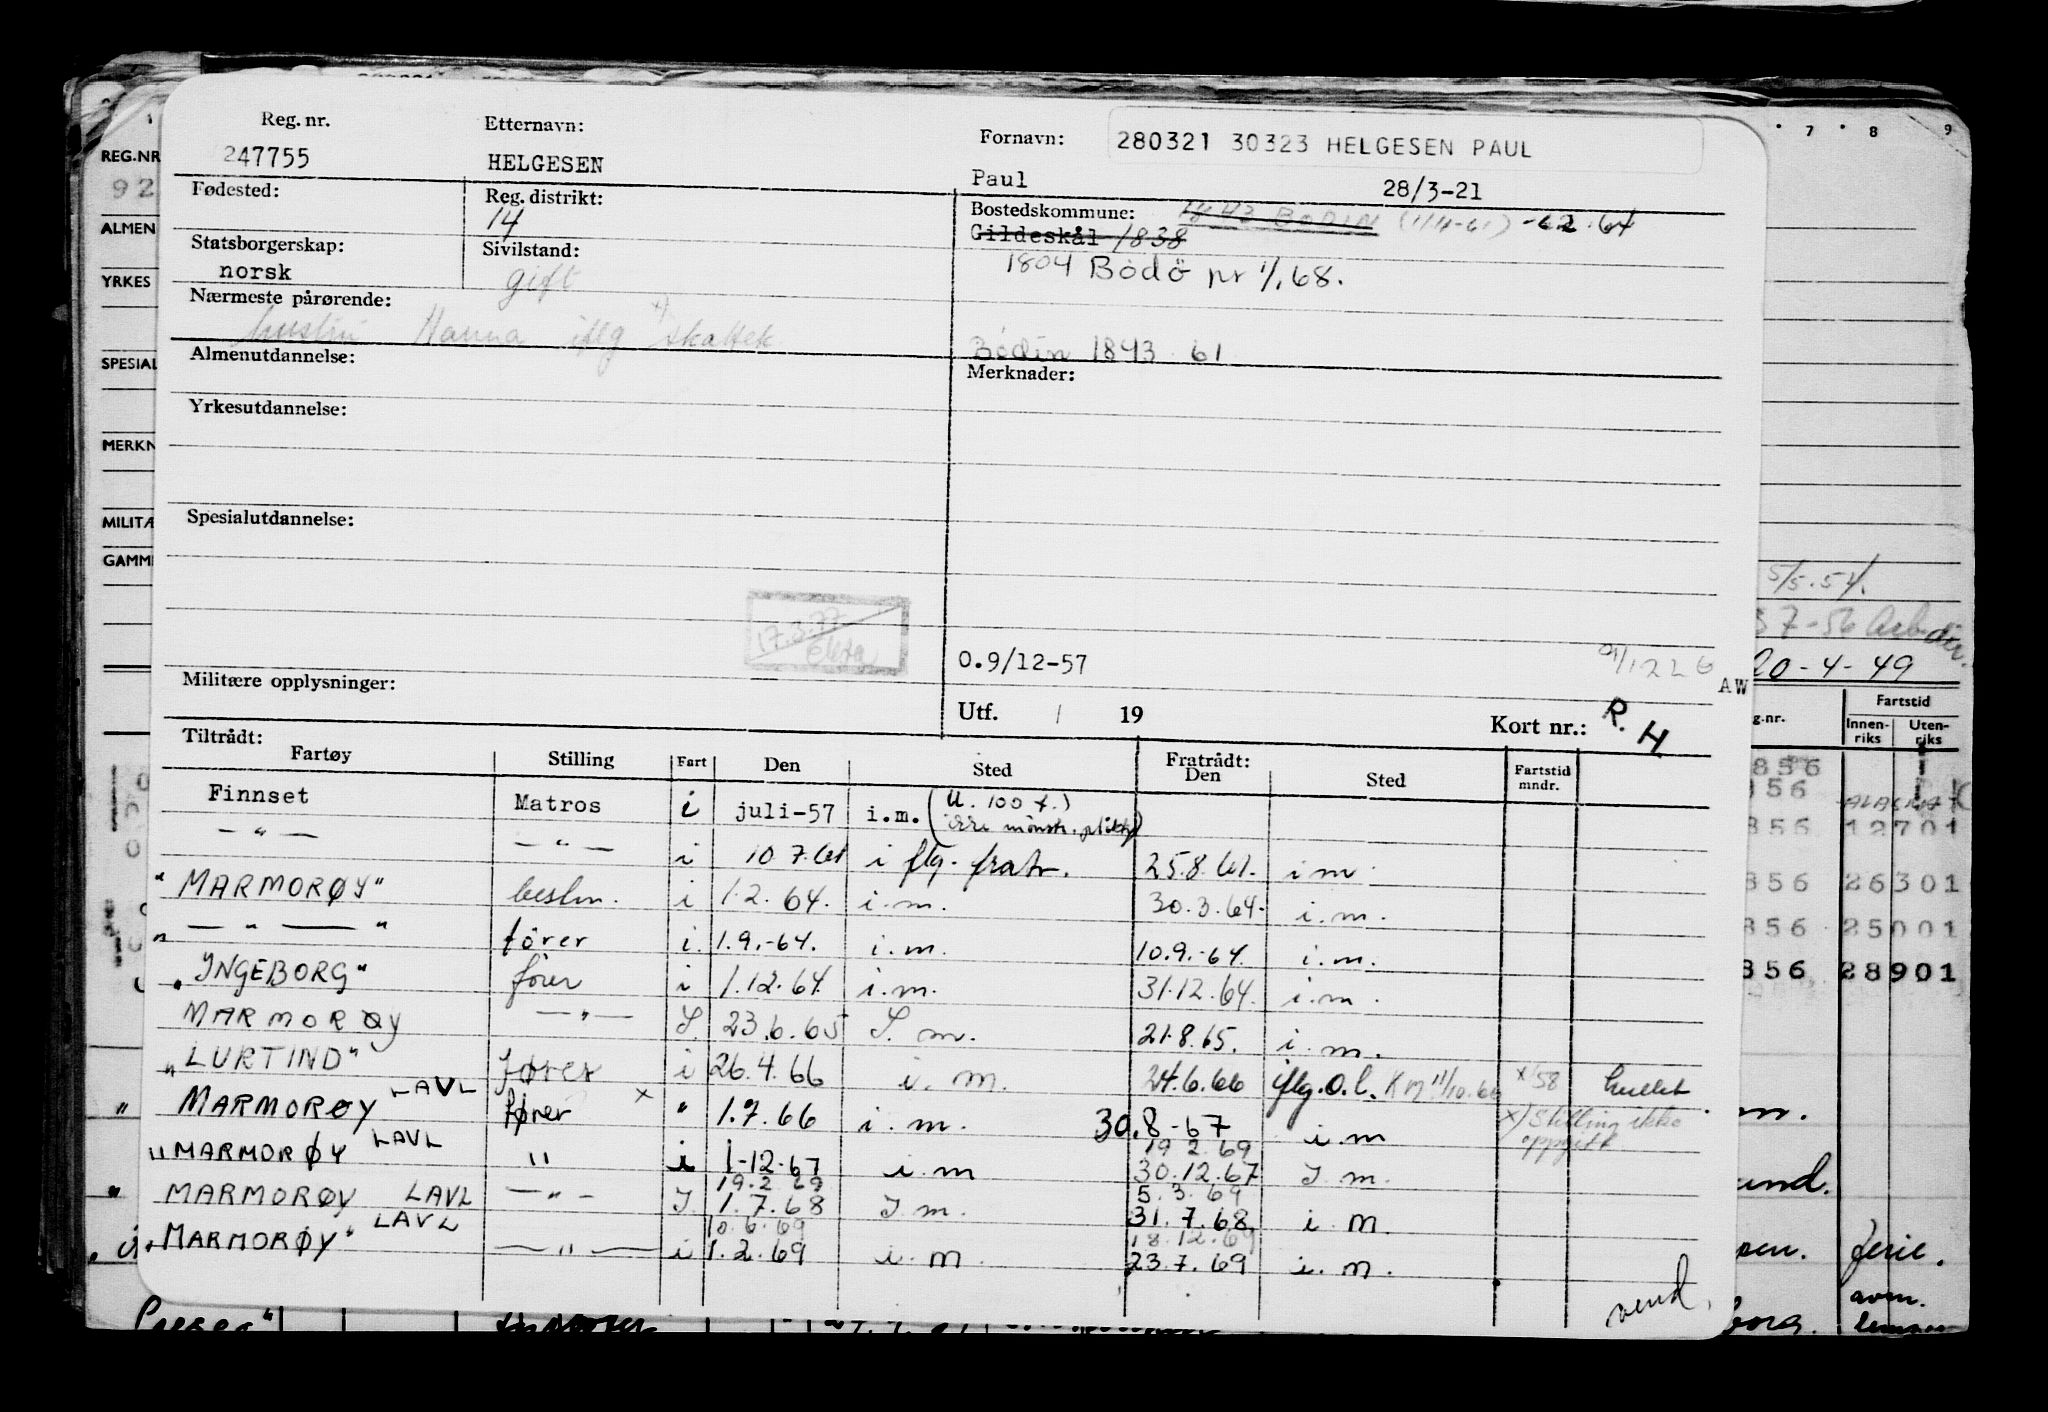 Reg. nr. Etternavn: Fornavn: 280321 30323 HELGESEN PAUL
247755 HELGESEN Paul 28/3-21
Fødested: Reg. distrikt: 14 Bostedskommune: 1843 BODIN (1/4-61) -62.64
Gildeskål 1838
Statsborgerskap: Sivilstand:
norsk gift 1804 Bodö pr 1/1.68.
Nærmeste pårørende:
hustru Hanna iflg x) skattek
Bodin 1843 61
Almenutdannelse: Merknader:
Yrkesutdannelse:
Spesialutdannelse:
17.3.77
O.9/12-57
AW
Militære opplysninger:
Utf. / 19 Kort nr.: R. H
Tiltrådt: Fratrådt:
Fartøy Stilling Fart Den Sted Den Sted Fartstid mndr.
Finnset Matros i juli-57 i.m. (U. 100 t.) ikke mønstr. pliktig)
— " — — " — i 10 7.61 i flg. fratr. 25.8.61. i m
"MARMORØY" bestm. i 1.2.64. i.m. 30.3.64. i.m.
" — " — " fører i. 1.9.-64. i.m. 10.9.-64. i.m.
"INGEBORG" fører i 1.12.64. i.m. 31.12.64. i.m.
MARMORØY — " — I. 23.6.65 I.m. 21.8.65. i.m.
"LURTIND" fører i 26.4.66 i.m. 24.6.66 iflg. O.l. KM 11/10.66 x/58 hullet
" MARMORØY LAVL fører x " 1.7.66 i.m. 30.8-67 i.m x) Stilling ikke oppgitt
"MARMORØY LAVL " i 1-12-67 i.m 19 2.69 30.12.67 I m.
" MARMORØY LAVL — " — I 19.2 69 1.7.68 I.m. 5.3.69 31.7.68 i.m
"MARMORØY" LAVL — " — i 10.6.69 1.2.69 i.m 18.12.69 23.7.69 i.m.
vend.
REG.NR
92
ALMEN
YRKES
SPESIAL
MERKN
MILITÆ
GAMM
7 8 9
5/5.54.
20-4-49
g.nr. Fartstid
Innen-riks Uten-riks
856
856
856 12701
856 26301
856 25001
856 28901
ferie.